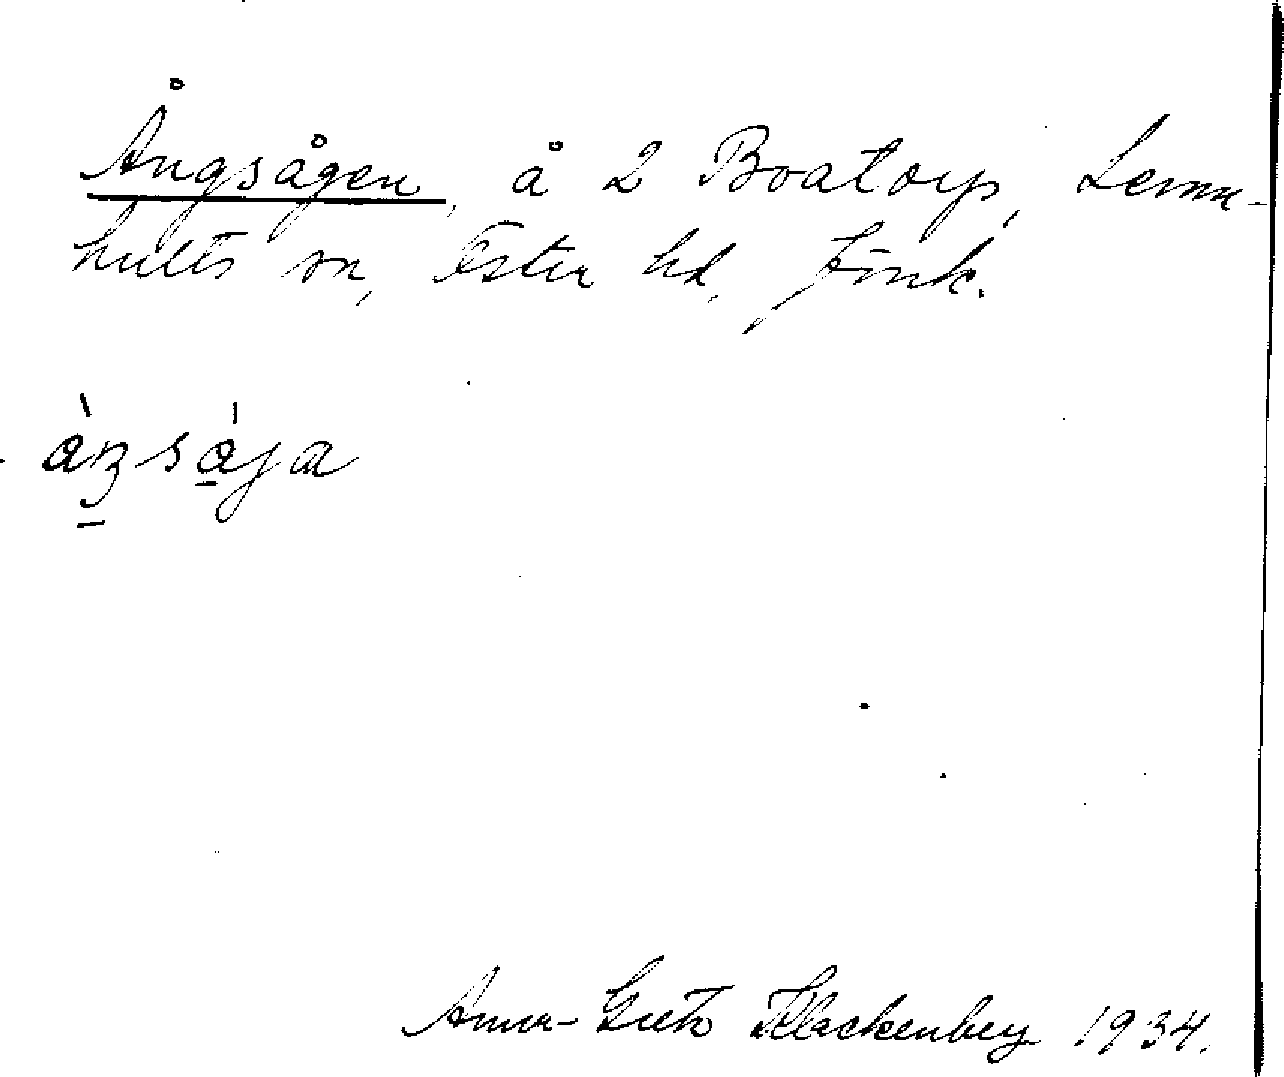 Ångsågen, å 2 Boatorp, Lemn-
hults sn, Östra hd, Jönk.
Anna-Greta Klackenberg 1934.